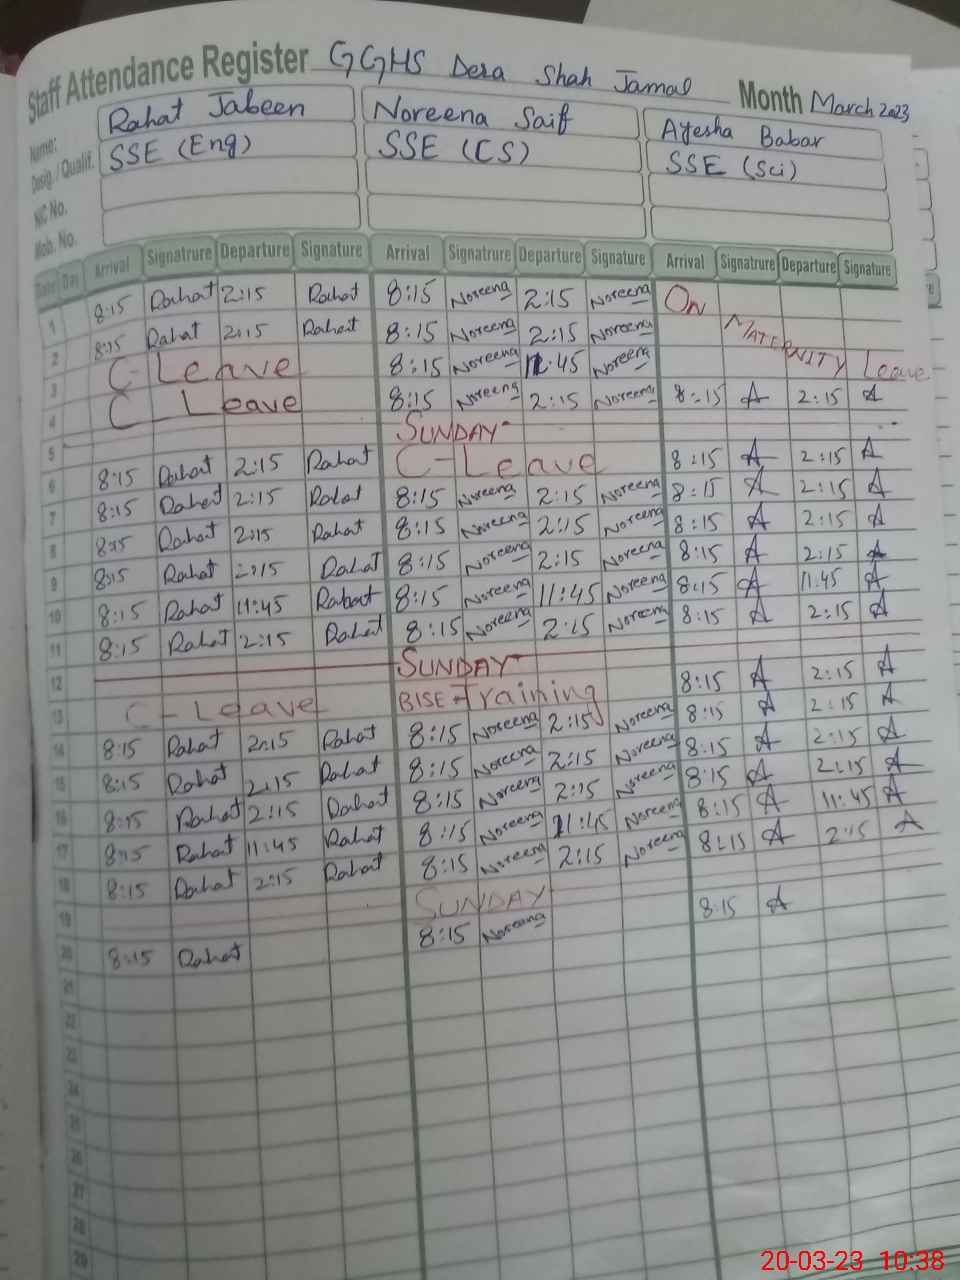 Staff Attendance Register GGHS Dera Shah Jamal Month March 2023
Name: Rahat Jabeen Noreena Saif Ayesha Babar
Desig. / Qualif. SSE (Eng) SSE (CS) SSE (Sci)
NIC No.
Mob. No.
Date Day Arrival Signatrure Departure Signature Arrival Signatrure Departure Signature Arrival Signatrure Departure Signature
1 8:15 Rahat 2:15 Rahat 8:15 Noreena 2:15 Noreena On
2 8:15 Rahat 2:15 Rahat 8:15 Noreena 2:15 Noreena MATERNITY
3 C-Leave 8:15 Noreena 12:45 Noreena Leave
4 C Leave 8:15 Noreena 2:15 Noreena 8:15 A 2:15 A
5 SUNDAY
6 8:15 Rahat 2:15 Rahat C-Leave 8:15 A 2:15 A
7 8:15 Rahat 2:15 Rahat 8:15 Noreena 2:15 Noreena 8:15 A 2:15 A
8 8:15 Rahat 2:15 Rahat 8:15 Noreena 2:15 Noreena 8:15 A 2:15 A
9 8:15 Rahat 2:15 Rahat 8:15 Noreena 2:15 Noreena 8:15 A 2:15 A
10 8:15 Rahat 11:45 Rahat 8:15 Noreena 11:45 Noreena 8:15 A 11:45 A
11 8:15 Rahat 2:15 Rahat 8:15 Noreena 2:15 Noreena 8:15 A 2:15 A
12 SUNDAY
13 C-Leave BISE-Training 8:15 A 2:15 A
14 8:15 Rahat 2:15 Rahat 8:15 Noreena 2:15 Noreena 8:15 A 2:15 A
15 8:15 Rahat 2:15 Rahat 8:15 Noreena 2:15 Noreena 8:15 A 2:15 A
16 8:15 Rahat 2:15 Rahat 8:15 Noreena 2:15 Noreena 8:15 A 2:15 A
17 8:15 Rahat 11:45 Rahat 8:15 Noreena 11:45 Noreena 8:15 A 11:45 A
18 8:15 Rahat 2:15 Rahat 8:15 Noreena 2:15 Noreena 8:15 A 2:15 A
19 SUNDAY
20 8:15 Rahat 8:15 Noreena 8:15 A
21
22
23
24
25
26
27
28
29
20-03-23 10:38